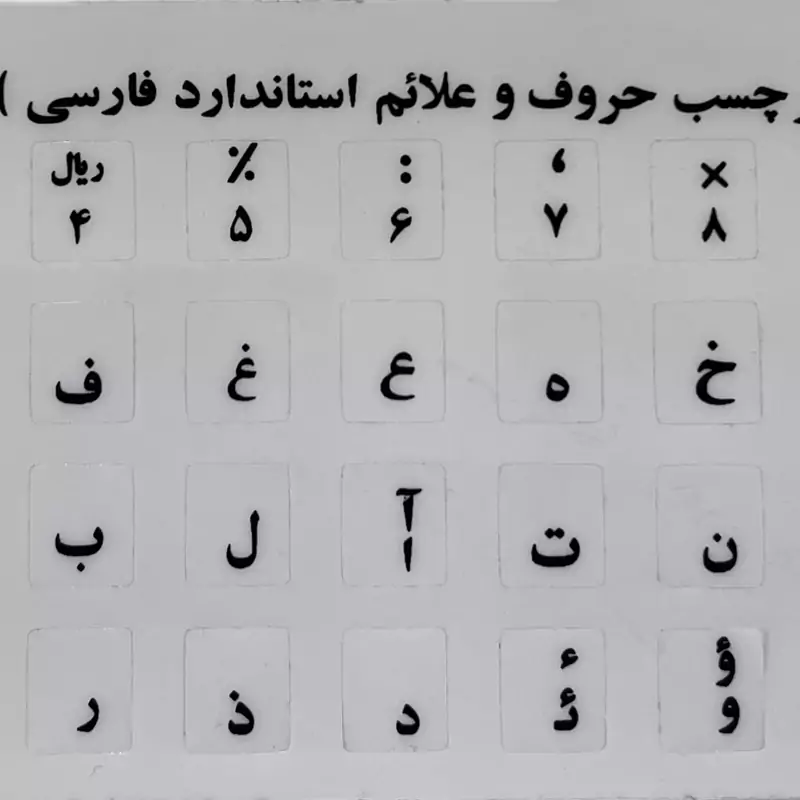 رچسب حروف و علائم استاندارد فارسی )
× ، : ٪ ریال
۸ ۷ ۶ ۵ ۴
خ ه ع غ ف
ن ت آ ل ب
ا
ؤ ء
و ئ د ذ ر